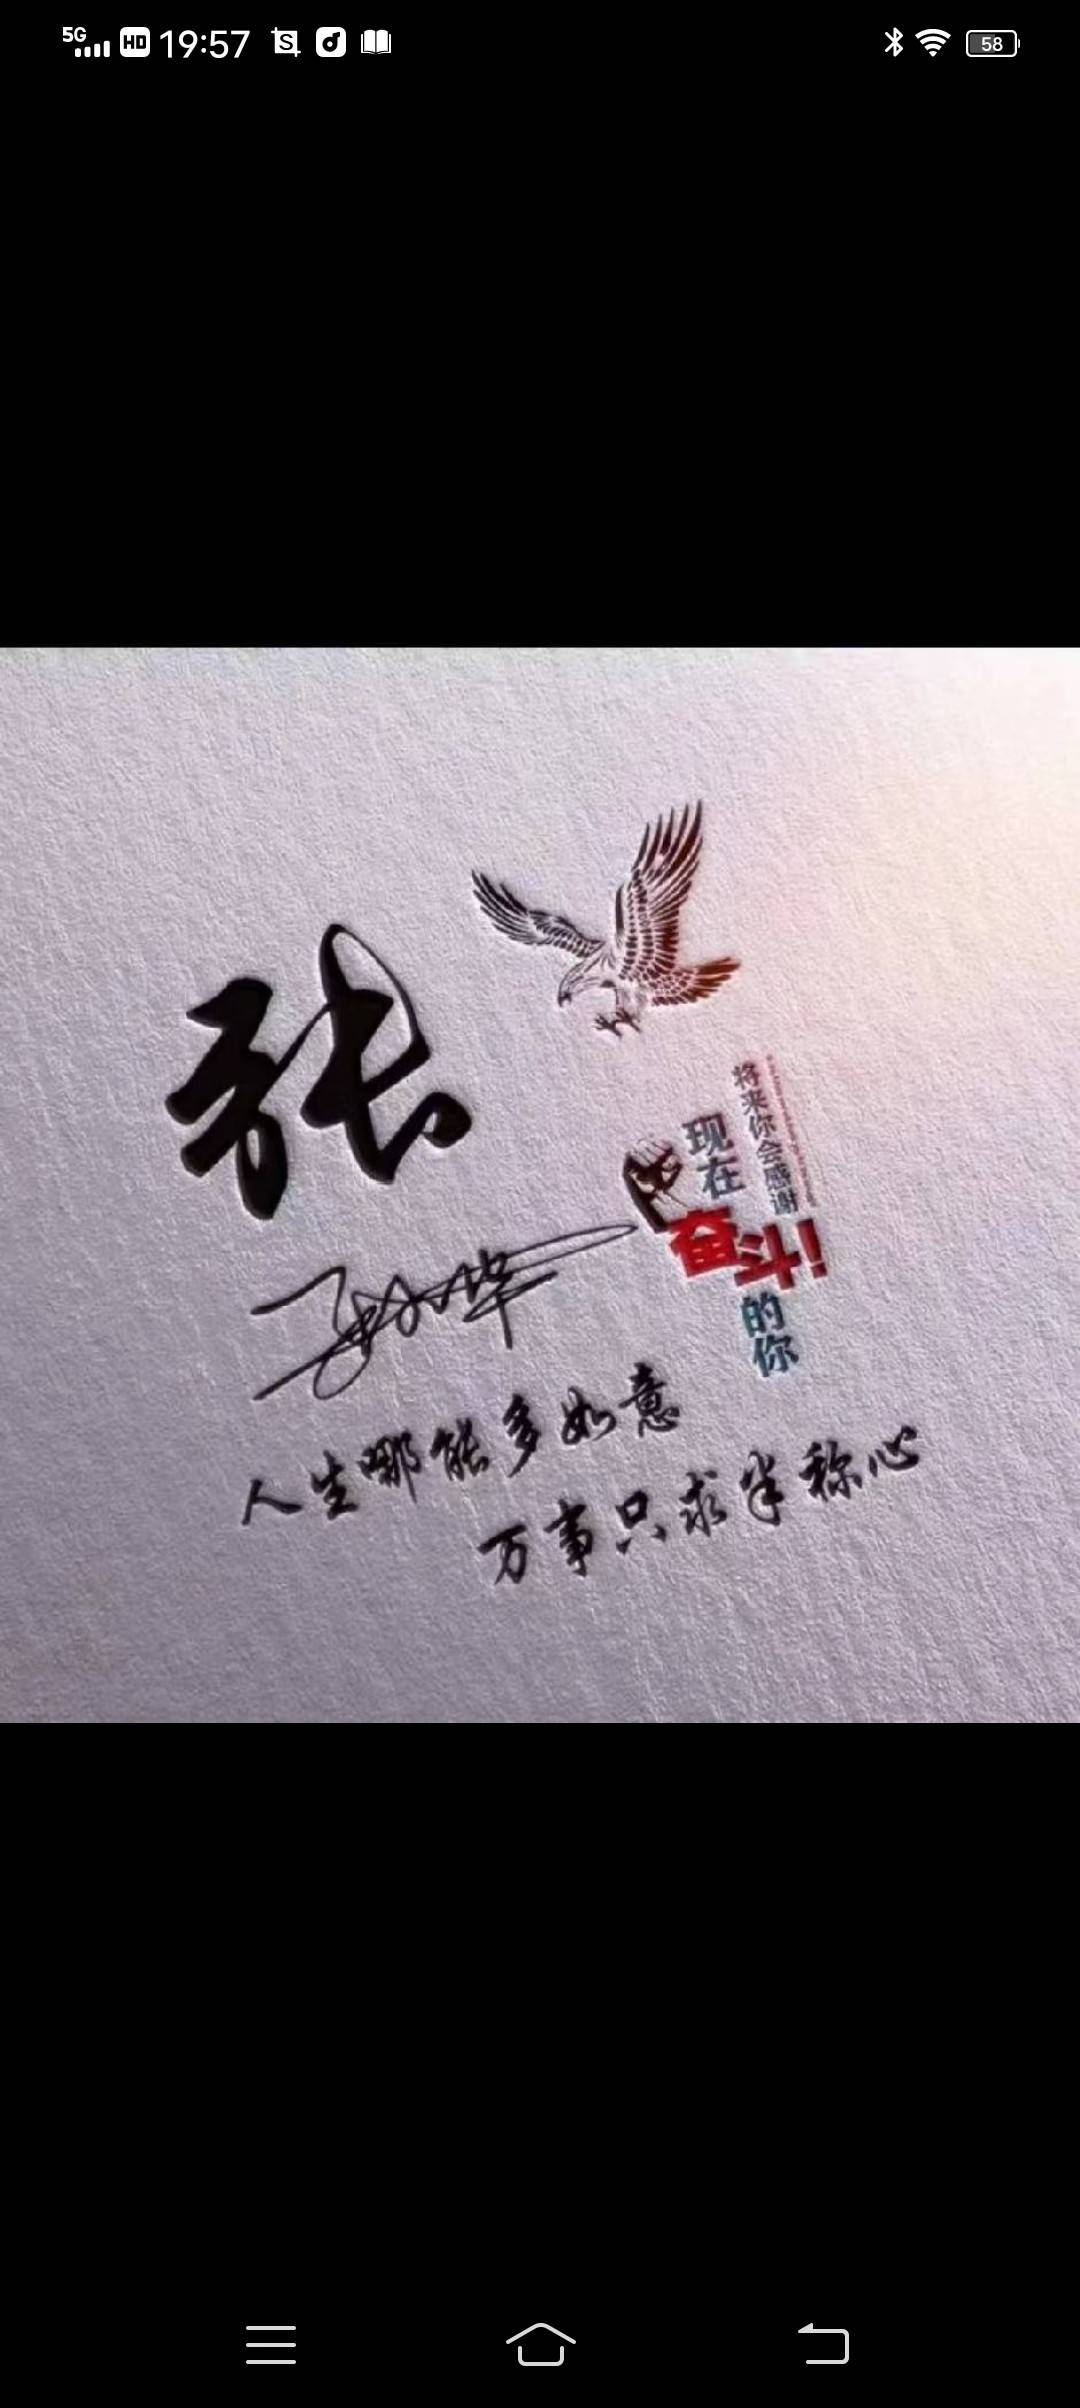 5G HD 19:57
58
张
将来你会感谢
现在
奋斗!
的你
人生哪能多如意
万事只求半称心